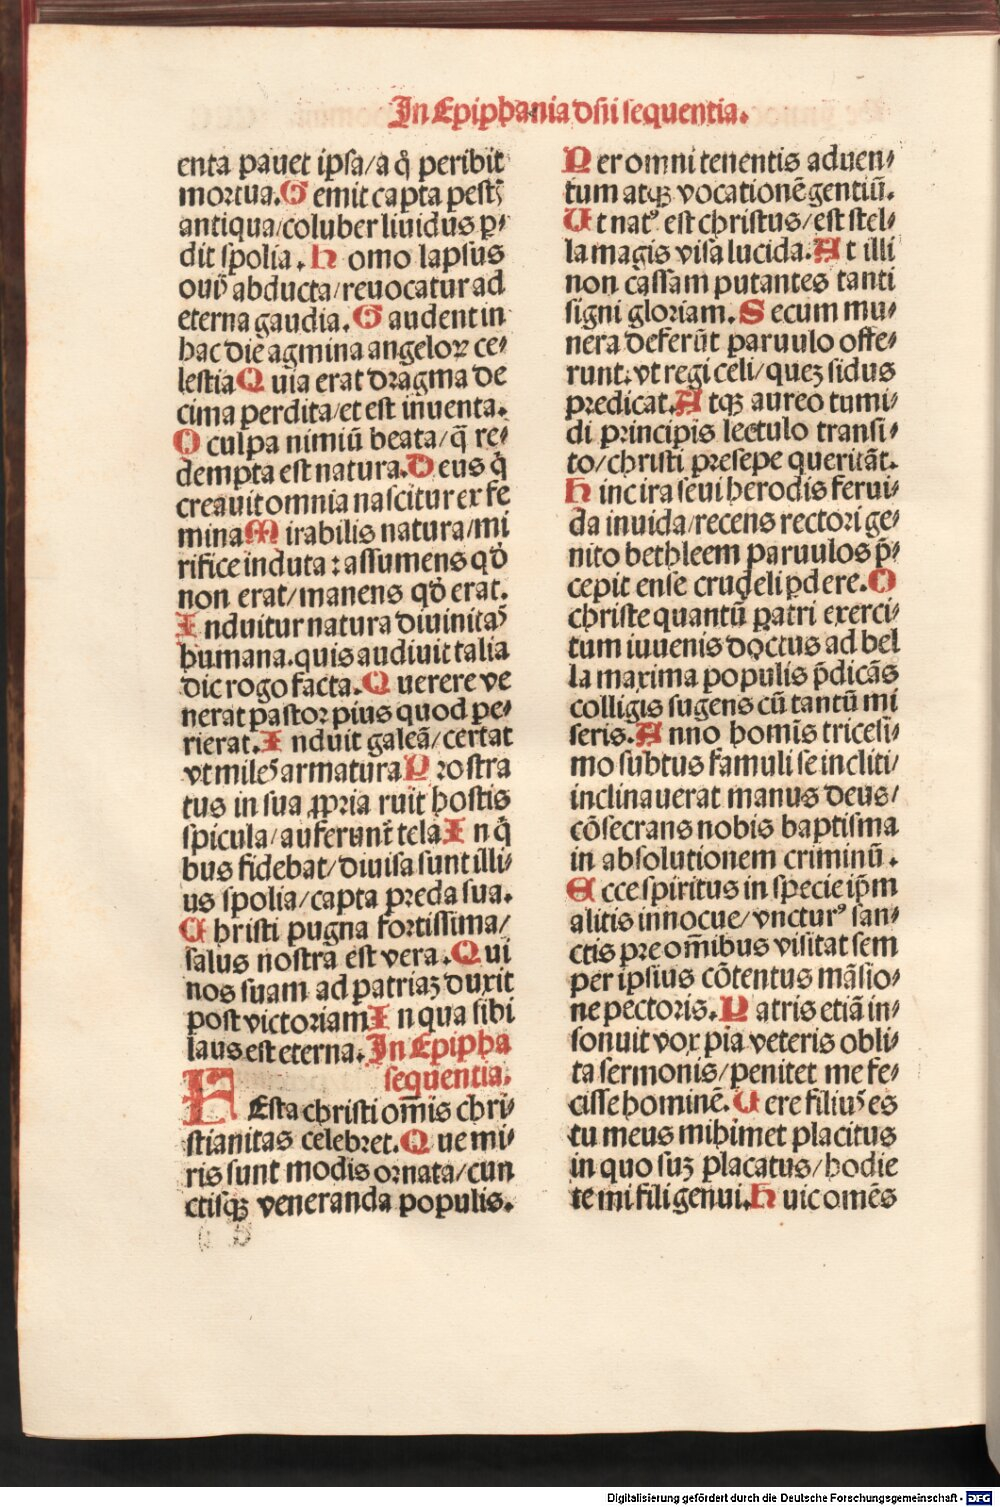 In Epiphania dñi sequentia.
enta pauet ipsa/a q̊ peribit
mortua. Gemit capta pestꝭ
antiqua/coluber liuidus ꝑ-
dit spolia. Homo lapsus
ouis abducta/reuocatur ad
eterna gaudia. Gaudent in
hac die agmina angeloꝝ ce⸗
lestia Quia erat dragma de
cima perdita/et est inuenta.
O culpa nimiū beata/q̄ re⸗
dempta est natura. Deus q̊
creauit omnia nascitur ex fe
mina Mirabilis natura/mi
rifice induta: assumens qđ
non erat/manens qđ erat.
Induitur natura diuinitaꝭ
humana. quis audiuit talia
dic rogo facta. Querere ve
nerat pastor pius quod pe⸗
rierat. Induit galeā/certat
vt miles armatura Prostra
tus in sua ꝓpria ruit hostis
spicula/auferunt̄ tela In q̊
bus fidebat/diuisa sunt illi⸗
us spolia/capta preda sua.
Christi pugna fortissima/
salus nostra est vera. Qui
nos suam ad patriaꝫ duxit
post victoriam In qua sibi
laus est eterna. In Epipha
sequentia.
FEsta christi om̄is chri⸗
stianitas celebret. Que mi⸗
ris sunt modis ornata/cun
ctisqꝫ veneranda populis.
Per omnitenentis aduen⸗
tum atqꝫ vocationē gentiū.
Ut natꝰ est christus/est stel⸗
la magis visa lucida. At illi
non cassam putantes tanti
signi gloriam. Secum mu⸗
nera deferūt paruulo offe⸗
runt. vt regi celi/queꝫ sidus
predicat. Atqꝫ aureo tumi⸗
di principis lectulo transi⸗
to/christi presepe queritāt.
Hinc ira seui herodis ferui⸗
da inuida/recens rectori ge⸗
nito bethleem paruulos p̄⸗
cepit ense crudeli ꝑdere. O
christe quantū patri exerci⸗
tum iuuenis doctus ad bel
la maxima populis p̄dicās
colligis sugens cū tantū mi
seris. Anno homīs tricesi⸗
mo subtus famuli se incliti/
inclinauerat manus deus/
cōsecrans nobis baptisma
in absolutionem criminū.
Ecce spiritus in specie ip̄m
alitis innocue/vncturꝰ san⸗
ctis pre om̄ibus visitat sem
per ipsius cōtentus māsio⸗
ne pectoris. Patris etiā in⸗
sonuit vox pia veteris obli⸗
ta sermonis/penitet me fe⸗
cisse hominē. Vere filius es
tu meus mihimet placitus
in quo suꝫ placatus/hodie
te mi fili genui. Huic omēs
Digitalisierung gefördert durch die Deutsche Forschungsgemeinschaft - DFG